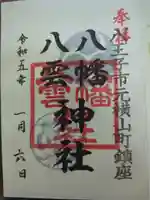 奉拝
八王子市元横山町鎮座
八幡神社
八雲神社
令和五年
一月六日